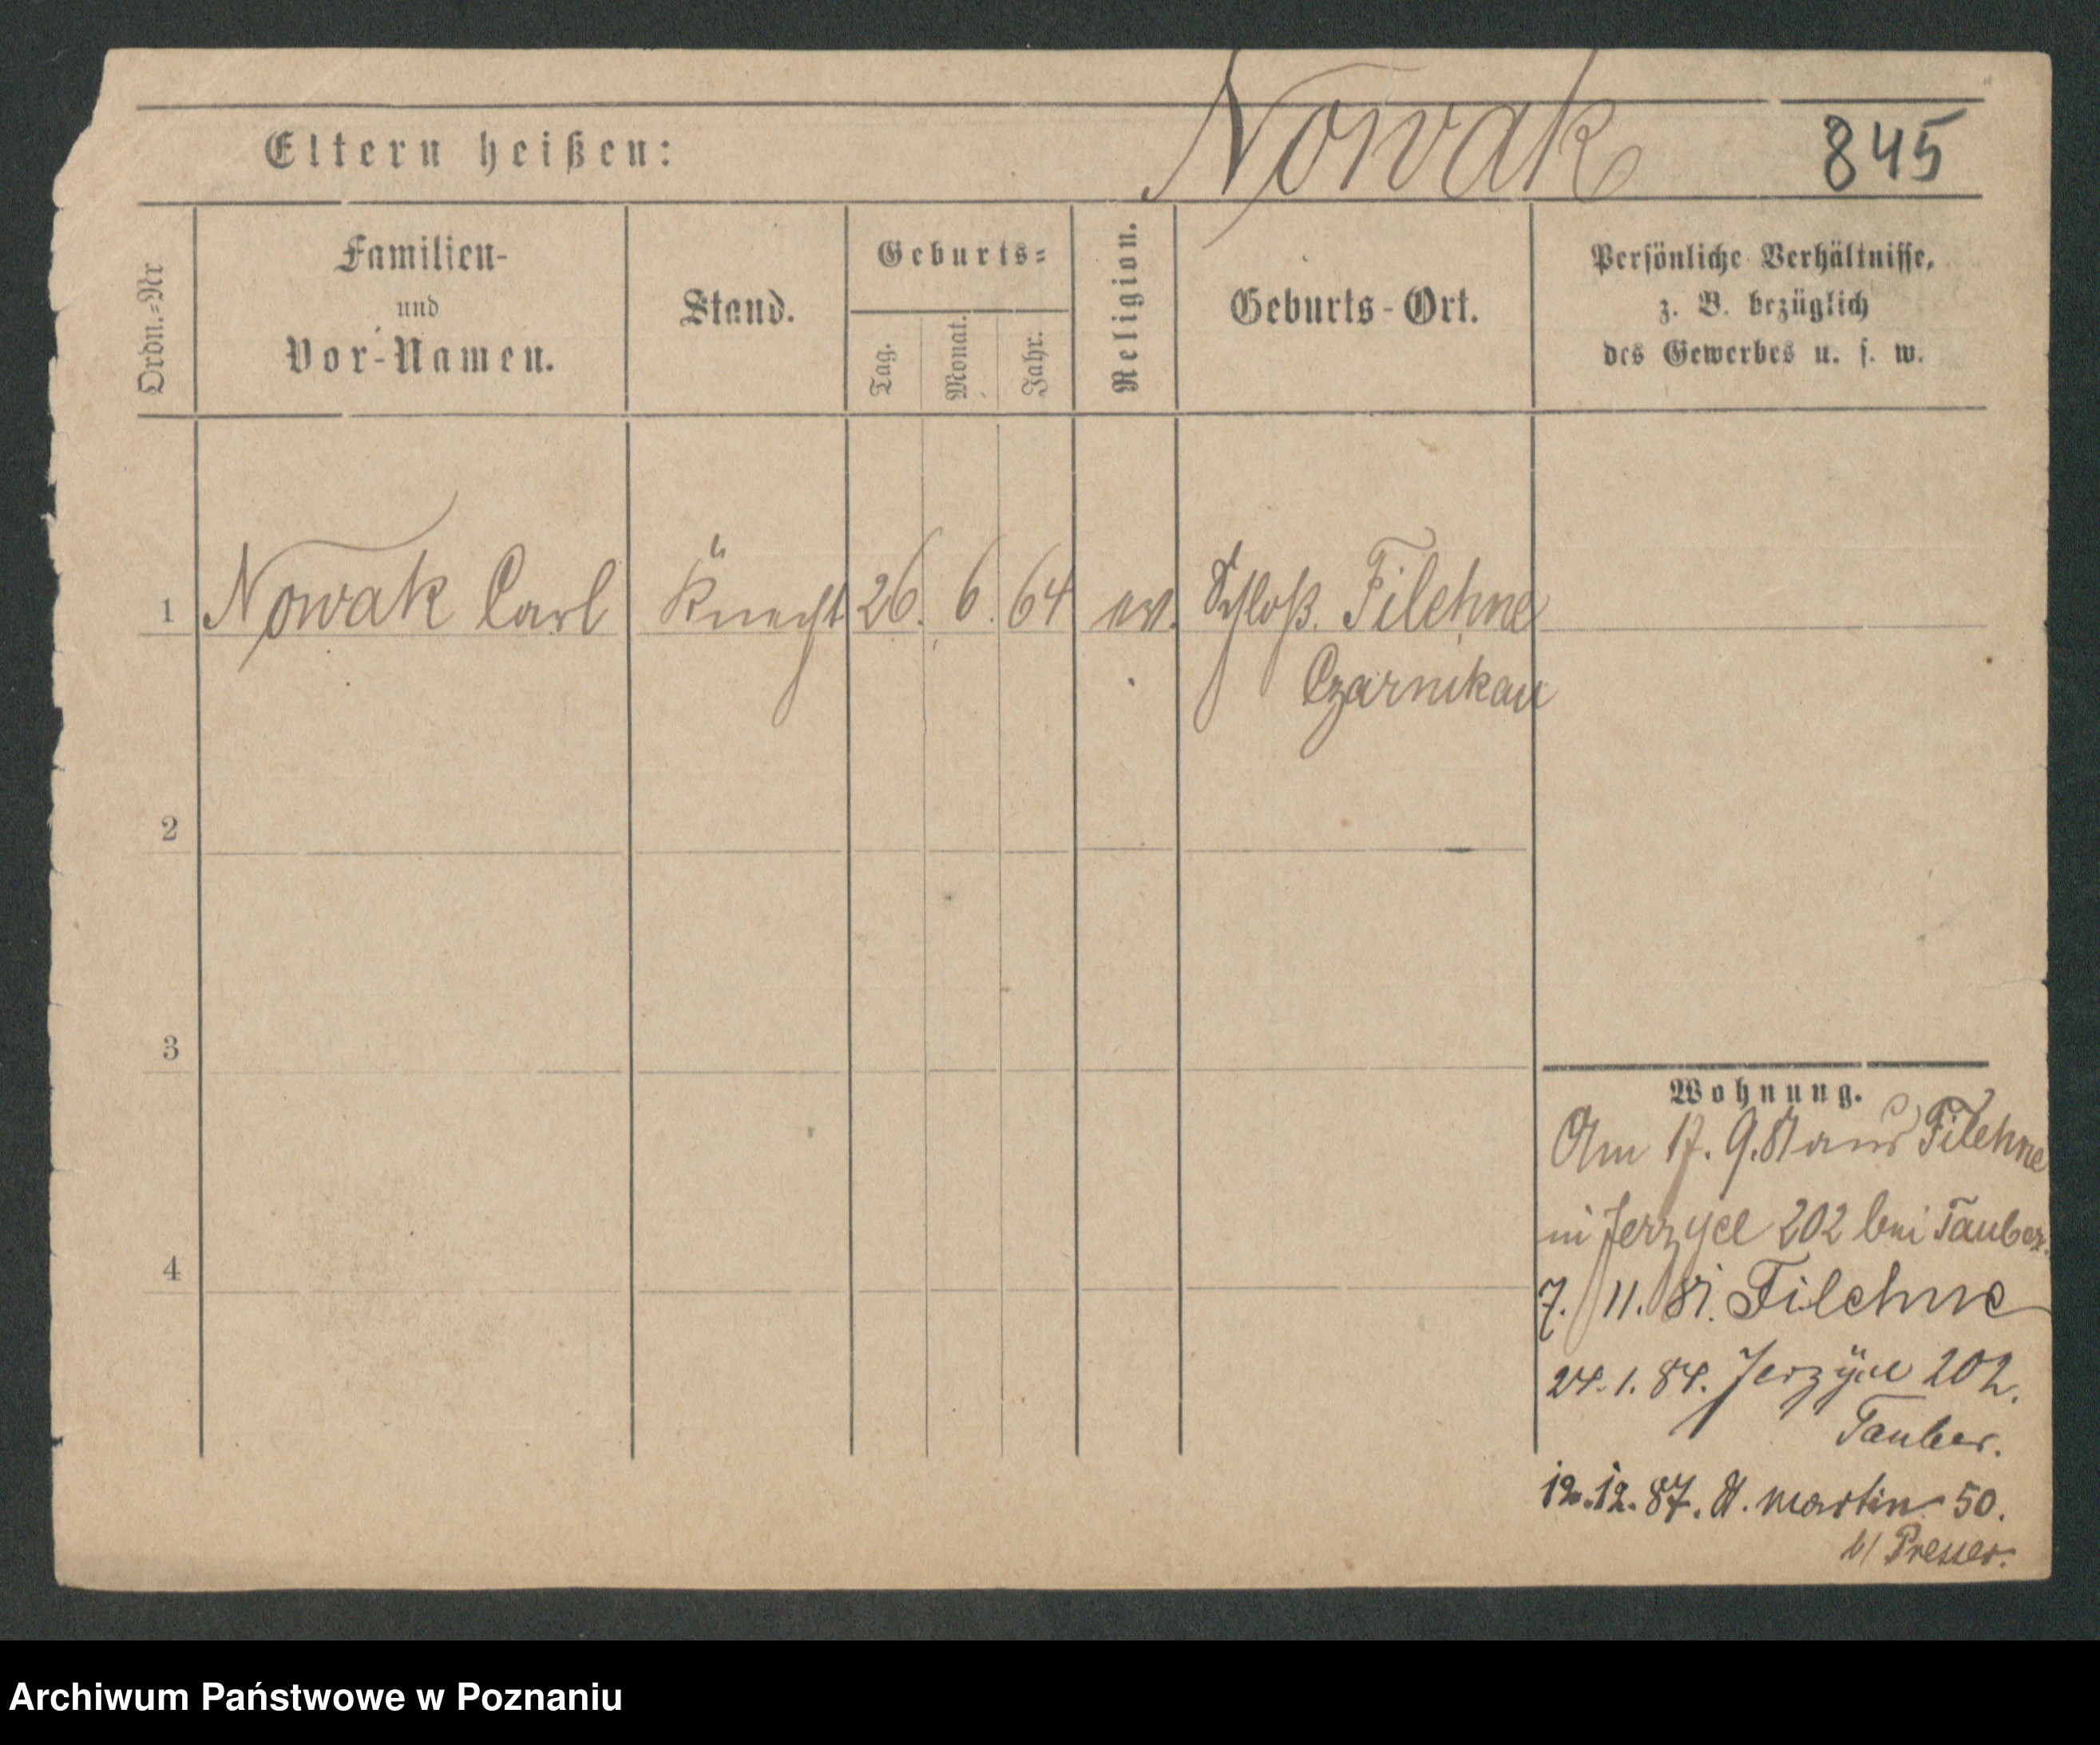 Nowak 845
Eltern heißen:
Ordn.-Nr
Familien-
und
Vor-Namen.
Stand.
Geburts-
Tag.
Monat.
Jahr.
Religion.
Geburts-Ort.
Persönliche Verhältnisse,
z. B. bezüglich
des Gewerbes u. s. w.
1 Nowak Carl Knecht 26. 6. 64 ev. Schloß. Filehne
Czarnikau
2
3
4
Wohnung.
Am 17. 9. 81 aus Filehne
in Jerzyce 202 bei Tauber.
7. 11. 81. Filehne
24. 1. 84. Jerzyce 202.
Tauber.
12. 12. 87. St. Martin 50.
b/ Presser.
Archiwum Państwowe w Poznaniu